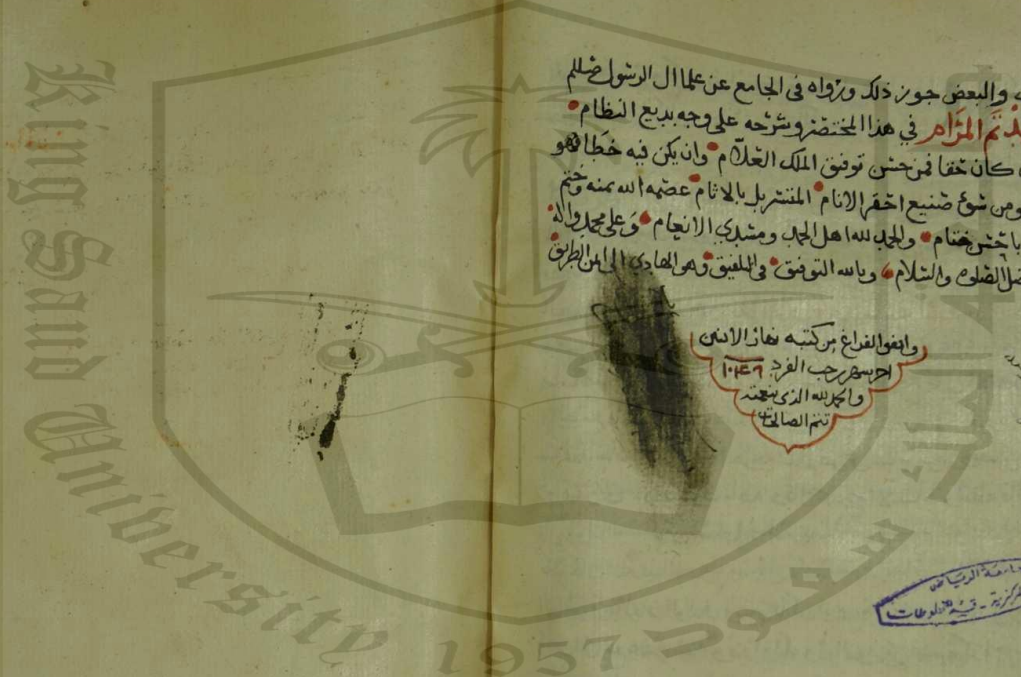 والبعض جوز ذلك ورواه في الجامع عن علما ال الرسول صللم
تم المرام في هذا المختصر وشرحه على وجه بديع النظام
كان حقا فمن حسن توفيق الملك العلام وان يكن فيه خطا فهو
ومن سوء صنيع احقر الانام المتسربل بالاثام عصمه الله بمنه وختم
باحسن ختام والحمد لله اهل الحمد ومسدي الانعام وعلى محمد واله
الصلوه والسلام وبالله التوفيق وهو الهادي الى امن الطريق
واتفق الفراغ من كتبه نهار الاثنين
اخر شهر رجب الفرد ١٠٤٦
والحمد لله الذي بنعمته
تتم الصالحات
جامعة الرياض
King Saud University
1957
سعود